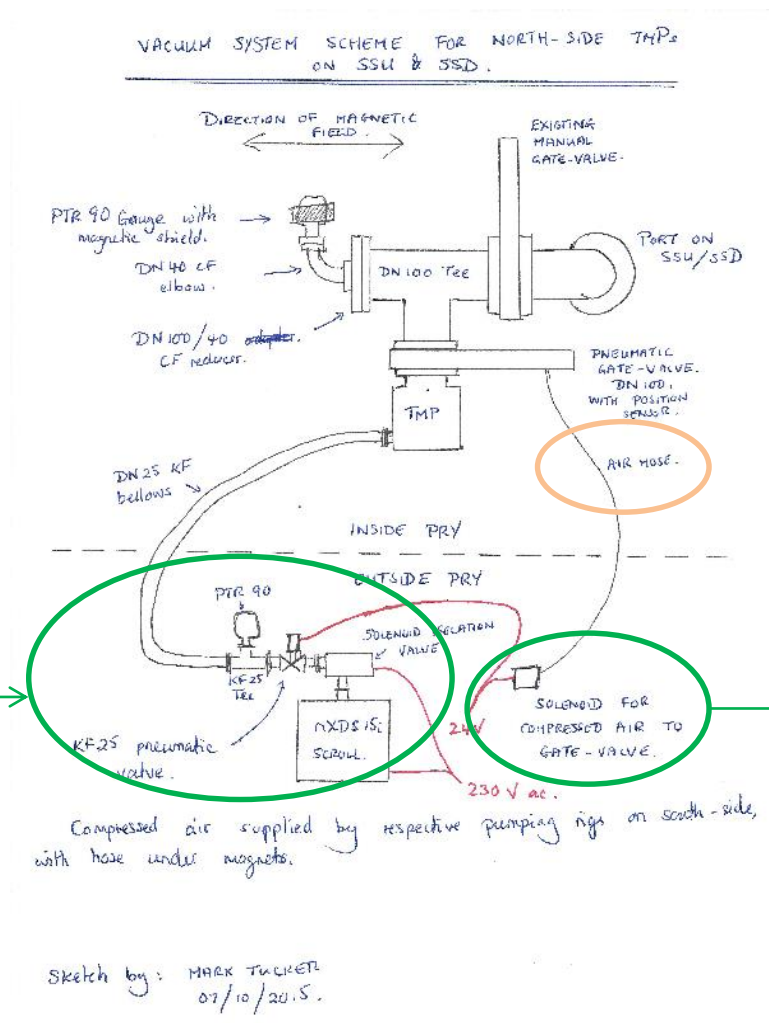 VACUUM SYSTEM SCHEME FOR NORTH-SIDE TMPs
ON SSU & SSD.
DIRECTION OF MAGNETIC
FIELD.
EXISTING
MANUAL
GATE-VALVE.
PTR 90 Gauge with
magnetic shield.
DN 40 CF
elbow.
DN 100 TEE
PORT ON
SSU/SSD
DN 100/40
CF reducer.
PNEUMATIC
GATE-VALVE.
DN 100,
WITH POSITION
SENSOR.
TMP
AIR HOSE.
DN 25 KF
bellows
INSIDE PRY
OUTSIDE PRY
PTR 90
SOLENOID ISOLATION
VALVE
KF 25
TEE
nXDS 15i
SCROLL.
24V
SOLENOID FOR
COMPRESSED AIR TO
GATE-VALVE.
KF 25 pneumatic
valve.
230 V ac.
Compressed air supplied by respective pumping rigs on south-side,
with hose under magnets.
Sketch by: MARK TUCKER
07/10/2015.